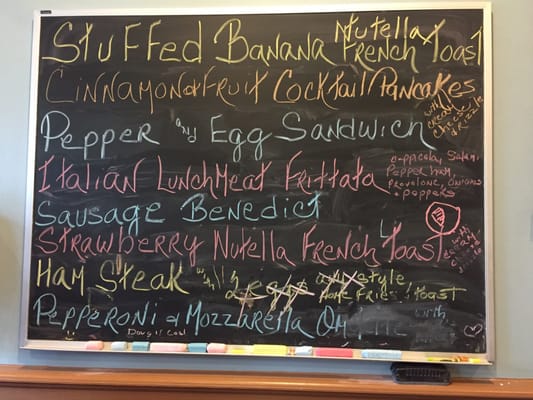 Stuffed Banana Nutella French Toast
Cinnamon & Fruit Cocktail Pancakes
with cream cheese drizzle
Pepper and Egg Sandwich
Italian Lunchmeat Frittata
Salami,
Pepper ham,
provolone, onions
& peppers
Sausage Benedict
Strawberry Nutella French Toast
Ham Steak with 2 eggs any style
Home Fries & toast
Pepperoni & Mozzarella Om
with
Doug is Cool